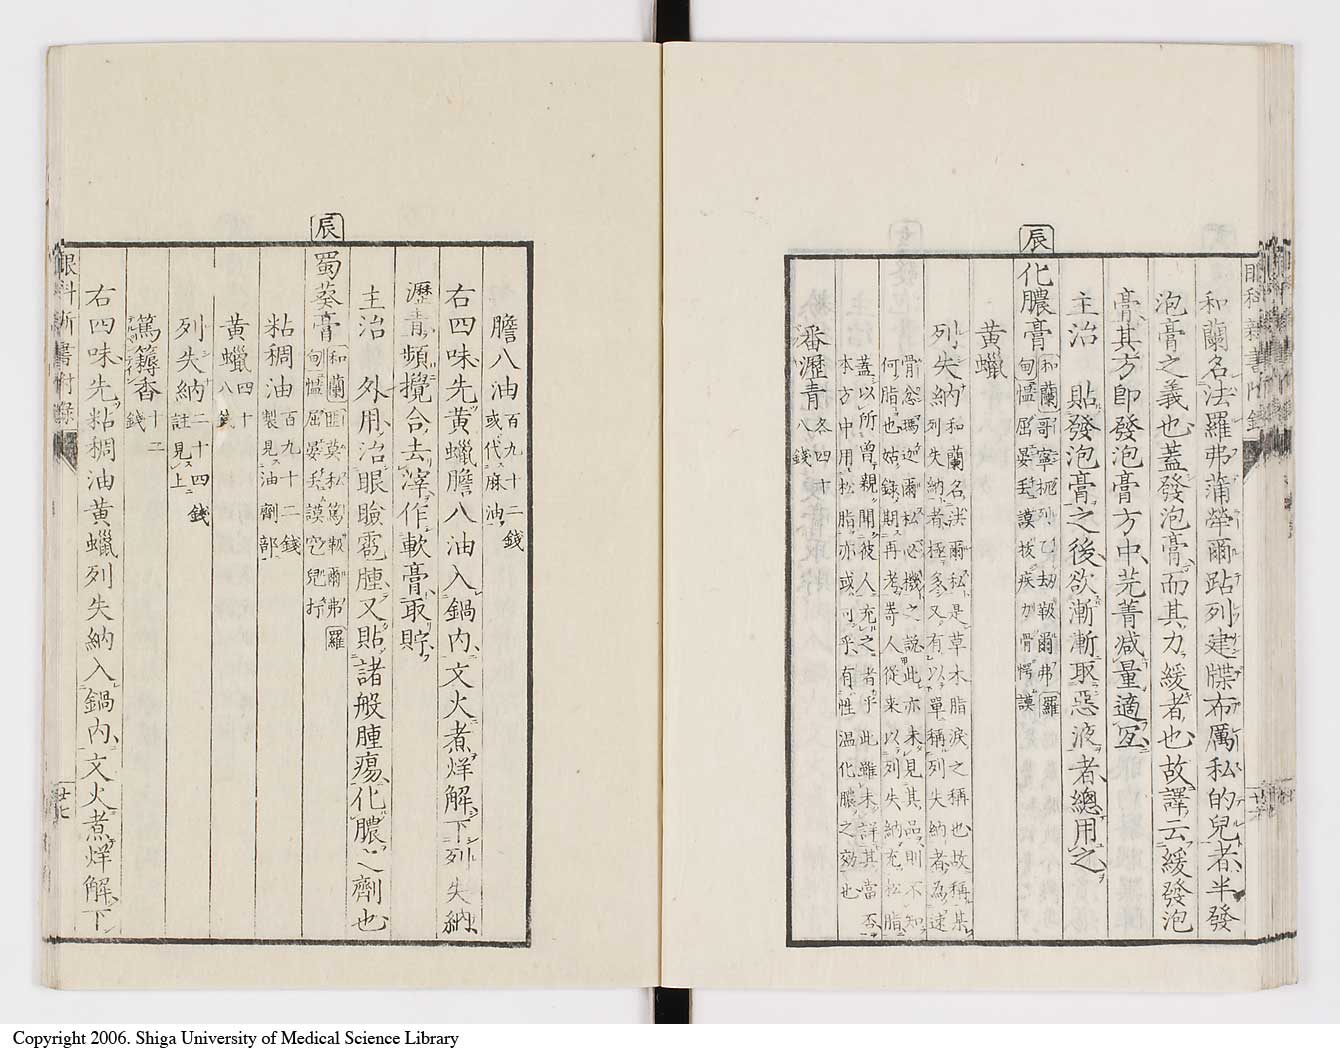 和蘭名法羅弗蒲縈爾跕列建牒布厲私的兒者半發
泡膏之義也蓋發泡膏而其力緩者也故譯云緩發泡
膏其方卽發泡膏方中芫菁減量適宜
主治 貼發泡膏之後欲漸漸取惡液者總用之
辰
化膿膏
和蘭
黃蠟
列失納 和蘭名法爾私是草木脂淚之稱也故稱某
列失納者極多又有以單稱列失納者為速
骨怨瑪迦爾松必機之說此亦未見其品則不知
何脂也姑錄期再考嵜人從來以列失納充松脂
蓋以所曾親聞彼人充之者乎此雖未詳其當否
本方中用松脂亦或可乎有性温化膿之効也
番瀝青 各四十
八錢
膽八油 百九十二錢
或代麻油
右四味先黃蠟膽八油入鍋内文火煮烊解下列失納
瀝青頻攪合去滓作軟膏取貯
主治 外用治眼瞼雹腫又貼諸般腫瘍化膿之劑也
辰
蜀葵膏
和蘭
粘稠油 百九十二錢
製見油劑部
黃蠟 四十
八錢
列失納 二十四錢
註見上
篤耨香 十二
錢
右四味先粘稠油黃蠟列失納入鍋内文火煮烊解下
眼科新書附錄
廿七
Copyright 2006. Shiga University of Medical Science Library